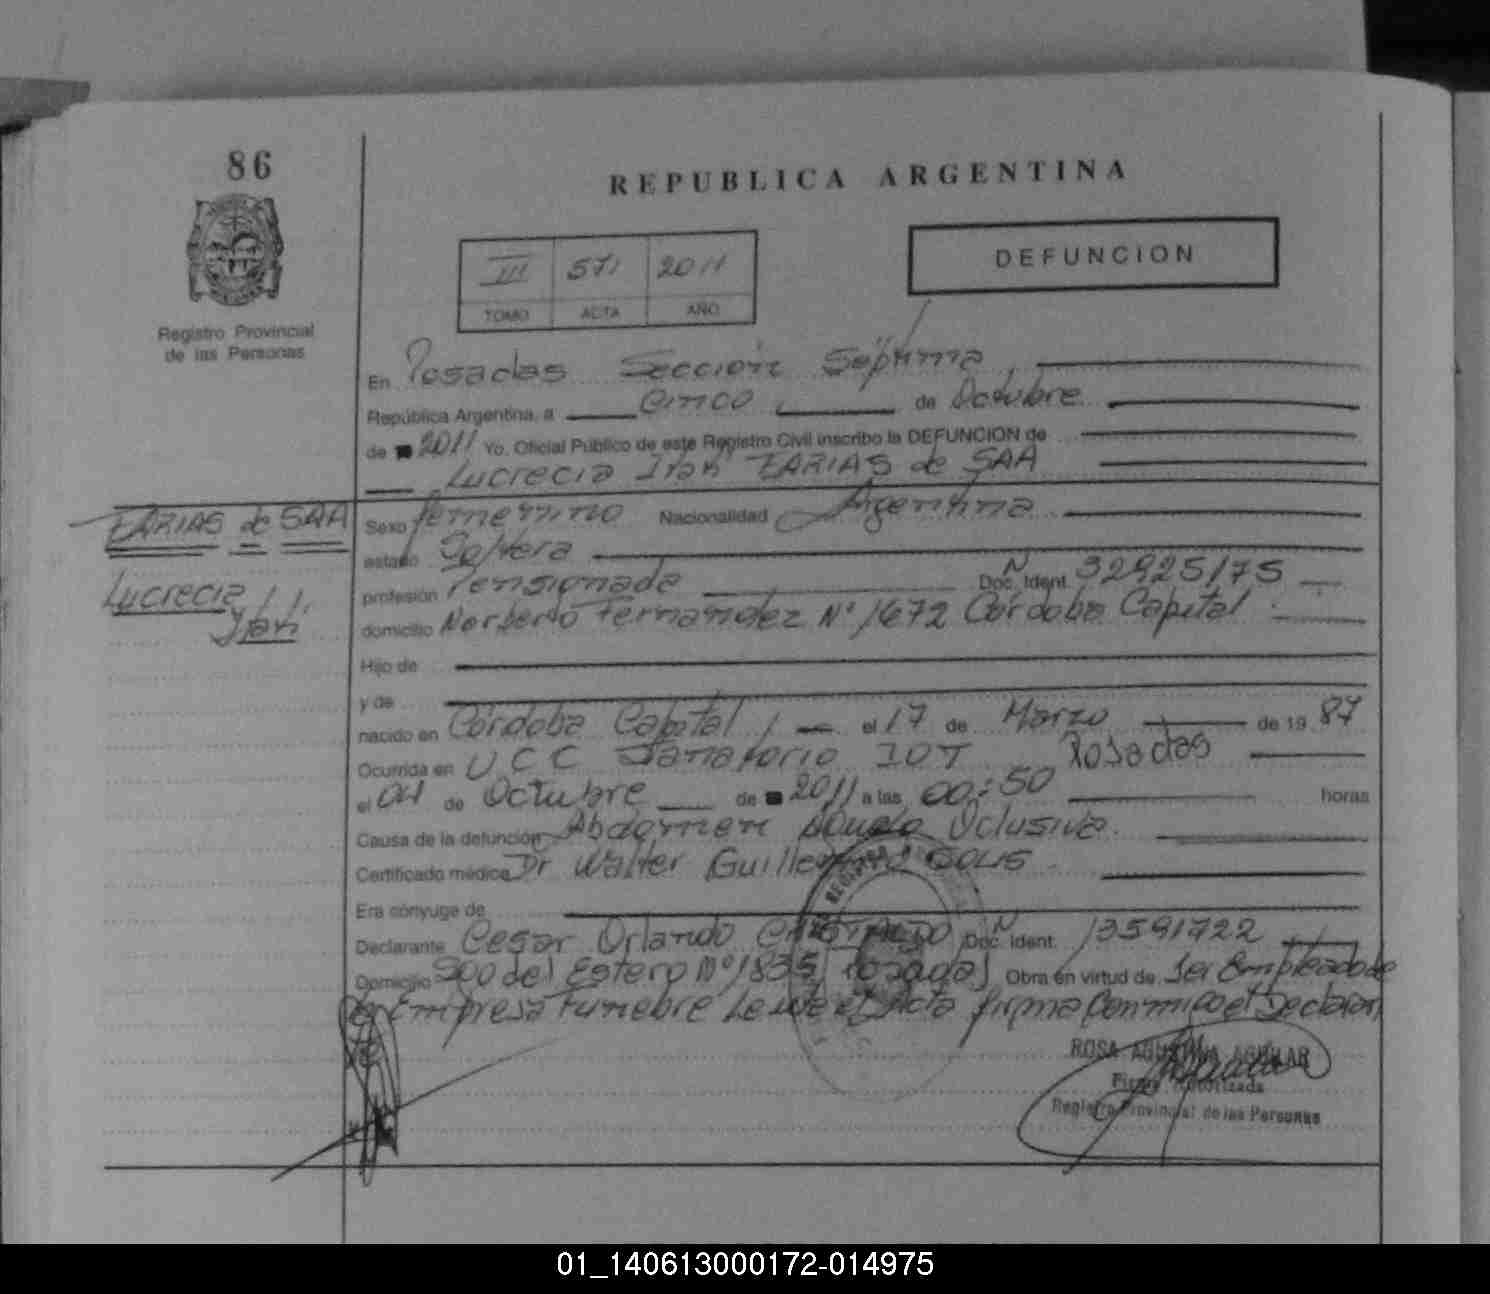 86
REPUBLICA ARGENTINA
Registro Provincial
de las Personas
III 571 2011
TOMO ACTA AÑO
DEFUNCION
En Posadas Sección Séptima
República Argentina, a Cinco de Octubre
de 2011 Yo, Oficial Público de este Registro Civil inscribo la DEFUNCION de
Lucrecia Irah FARIAS de SAA
FARIAS de SAA
Lucrecia
Irah
Sexo femenino Nacionalidad Argentina
estado Soltera
profesión Pensionada Doc. Ident. N 32925175
domicilio Norberto Fernandez Nº 1672 Córdoba Capital
Hijo de
y de
nacido en Córdoba Capital el 17 de Marzo de 19 87
Ocurrida en U C C Sanatorio IOT Posadas
el 04 de Octubre de 2011 a las 00:50 horas
Causa de la defunción Abdomen Agudo Oclusiva
Certificado médico Dr Walter Guillermo SOLIS
Era cónyuge de
Declarante Cesar Orlando Doc. Ident. N 13591722
Domicilio Sgo del Estero Nº 1835 Posadas Obra en virtud de Ser Empleado de
Empresa Funebre Leída el Acta firma conmigo el Declaran
te
ROSA AGUSTINA AGUILAR
Firma Autorizada
Registro Provincial de las Personas
01_140613000172-014975